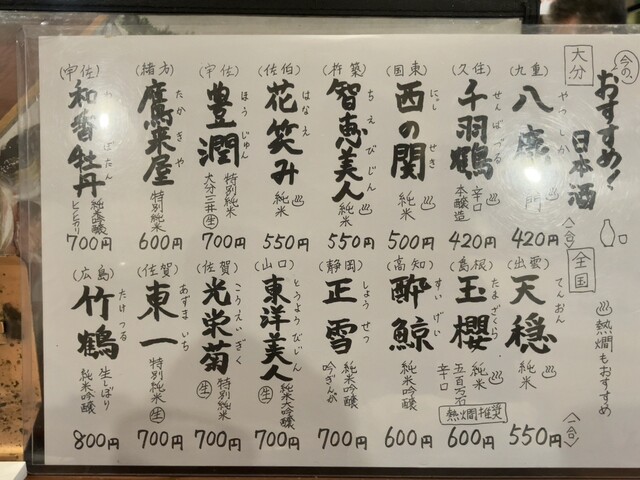 今の、
おすすめ！
日本酒
♨熱燗もおすすめ
大分
〈一合〉
(九重)
八鹿
やつしか
♨
420円
(久住)
千羽鶴
せんばづる
♨
辛口
本醸造
420円
(国東)
西の関
にし
せき
♨
純米
500円
(杵築)
智恵美人
ちえびじん
♨
純米
550円
(佐伯)
花笑み
はなえ
♨
純米
550円
(宇佐)
豊潤
ほうじゅん
特別純米
大分三井 生
700円
(緒方)
鷹来屋
たかきや
特別純米
600円
(宇佐)
和香牡丹
ぼたん
純米吟醸
ヒノヒカリ
700円
全国
〈一合〉
(出雲)
天穏
てんおん
♨
純米
550円
(島根)
玉櫻
たまざくら
♨
純米
五百万石
辛口
熱燗推奨
600円
(高知)
酔鯨
すいげい
純米吟醸
600円
(静岡)
正雪
しょうせつ
純米吟醸
吟ぎんが
700円
(山口)
東洋美人
とうようびじん
純米大吟醸
生
700円
(佐賀)
光栄菊
こうえいぎく
特別純米
生
700円
(佐賀)
東一
あずまいち
特別純米
生
700円
(広島)
竹鶴
たけつる
生しぼり
純米吟醸
800円